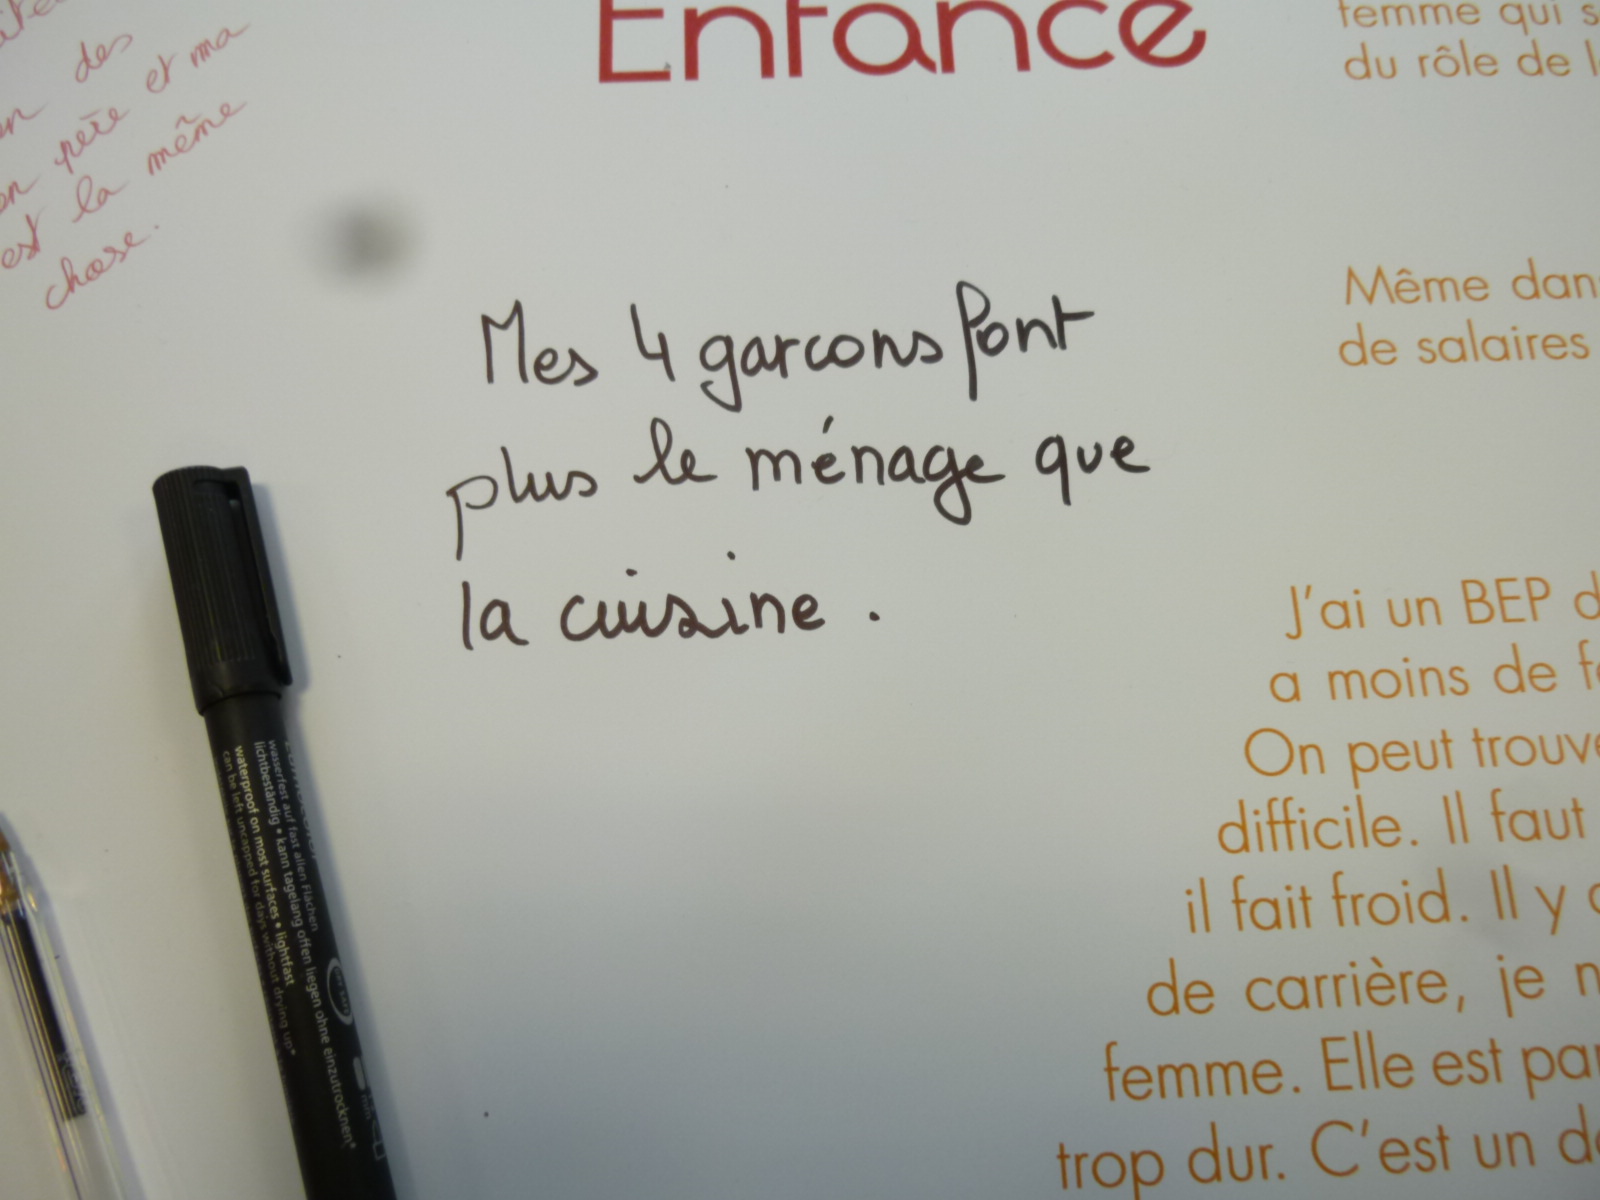 des
et ma
père
la même
est
chose.
Enfance
femme qui
du rôle de
Mes 4 garcons font
plus le ménage que
la cuisine.
Même dans
de salaires
J'ai un BEP
a moins de
On peut
difficile. Il faut
il fait froid. Il y
de carrière, je
femme. Elle est
trop dur. C'est un
wasserfest auf fast allen Flächen
lichtbeständig • kann tagelang offen liegen ohne einzutrocknen*
waterproof on most surfaces • lightfast
can be left uncapped for days without drying up*